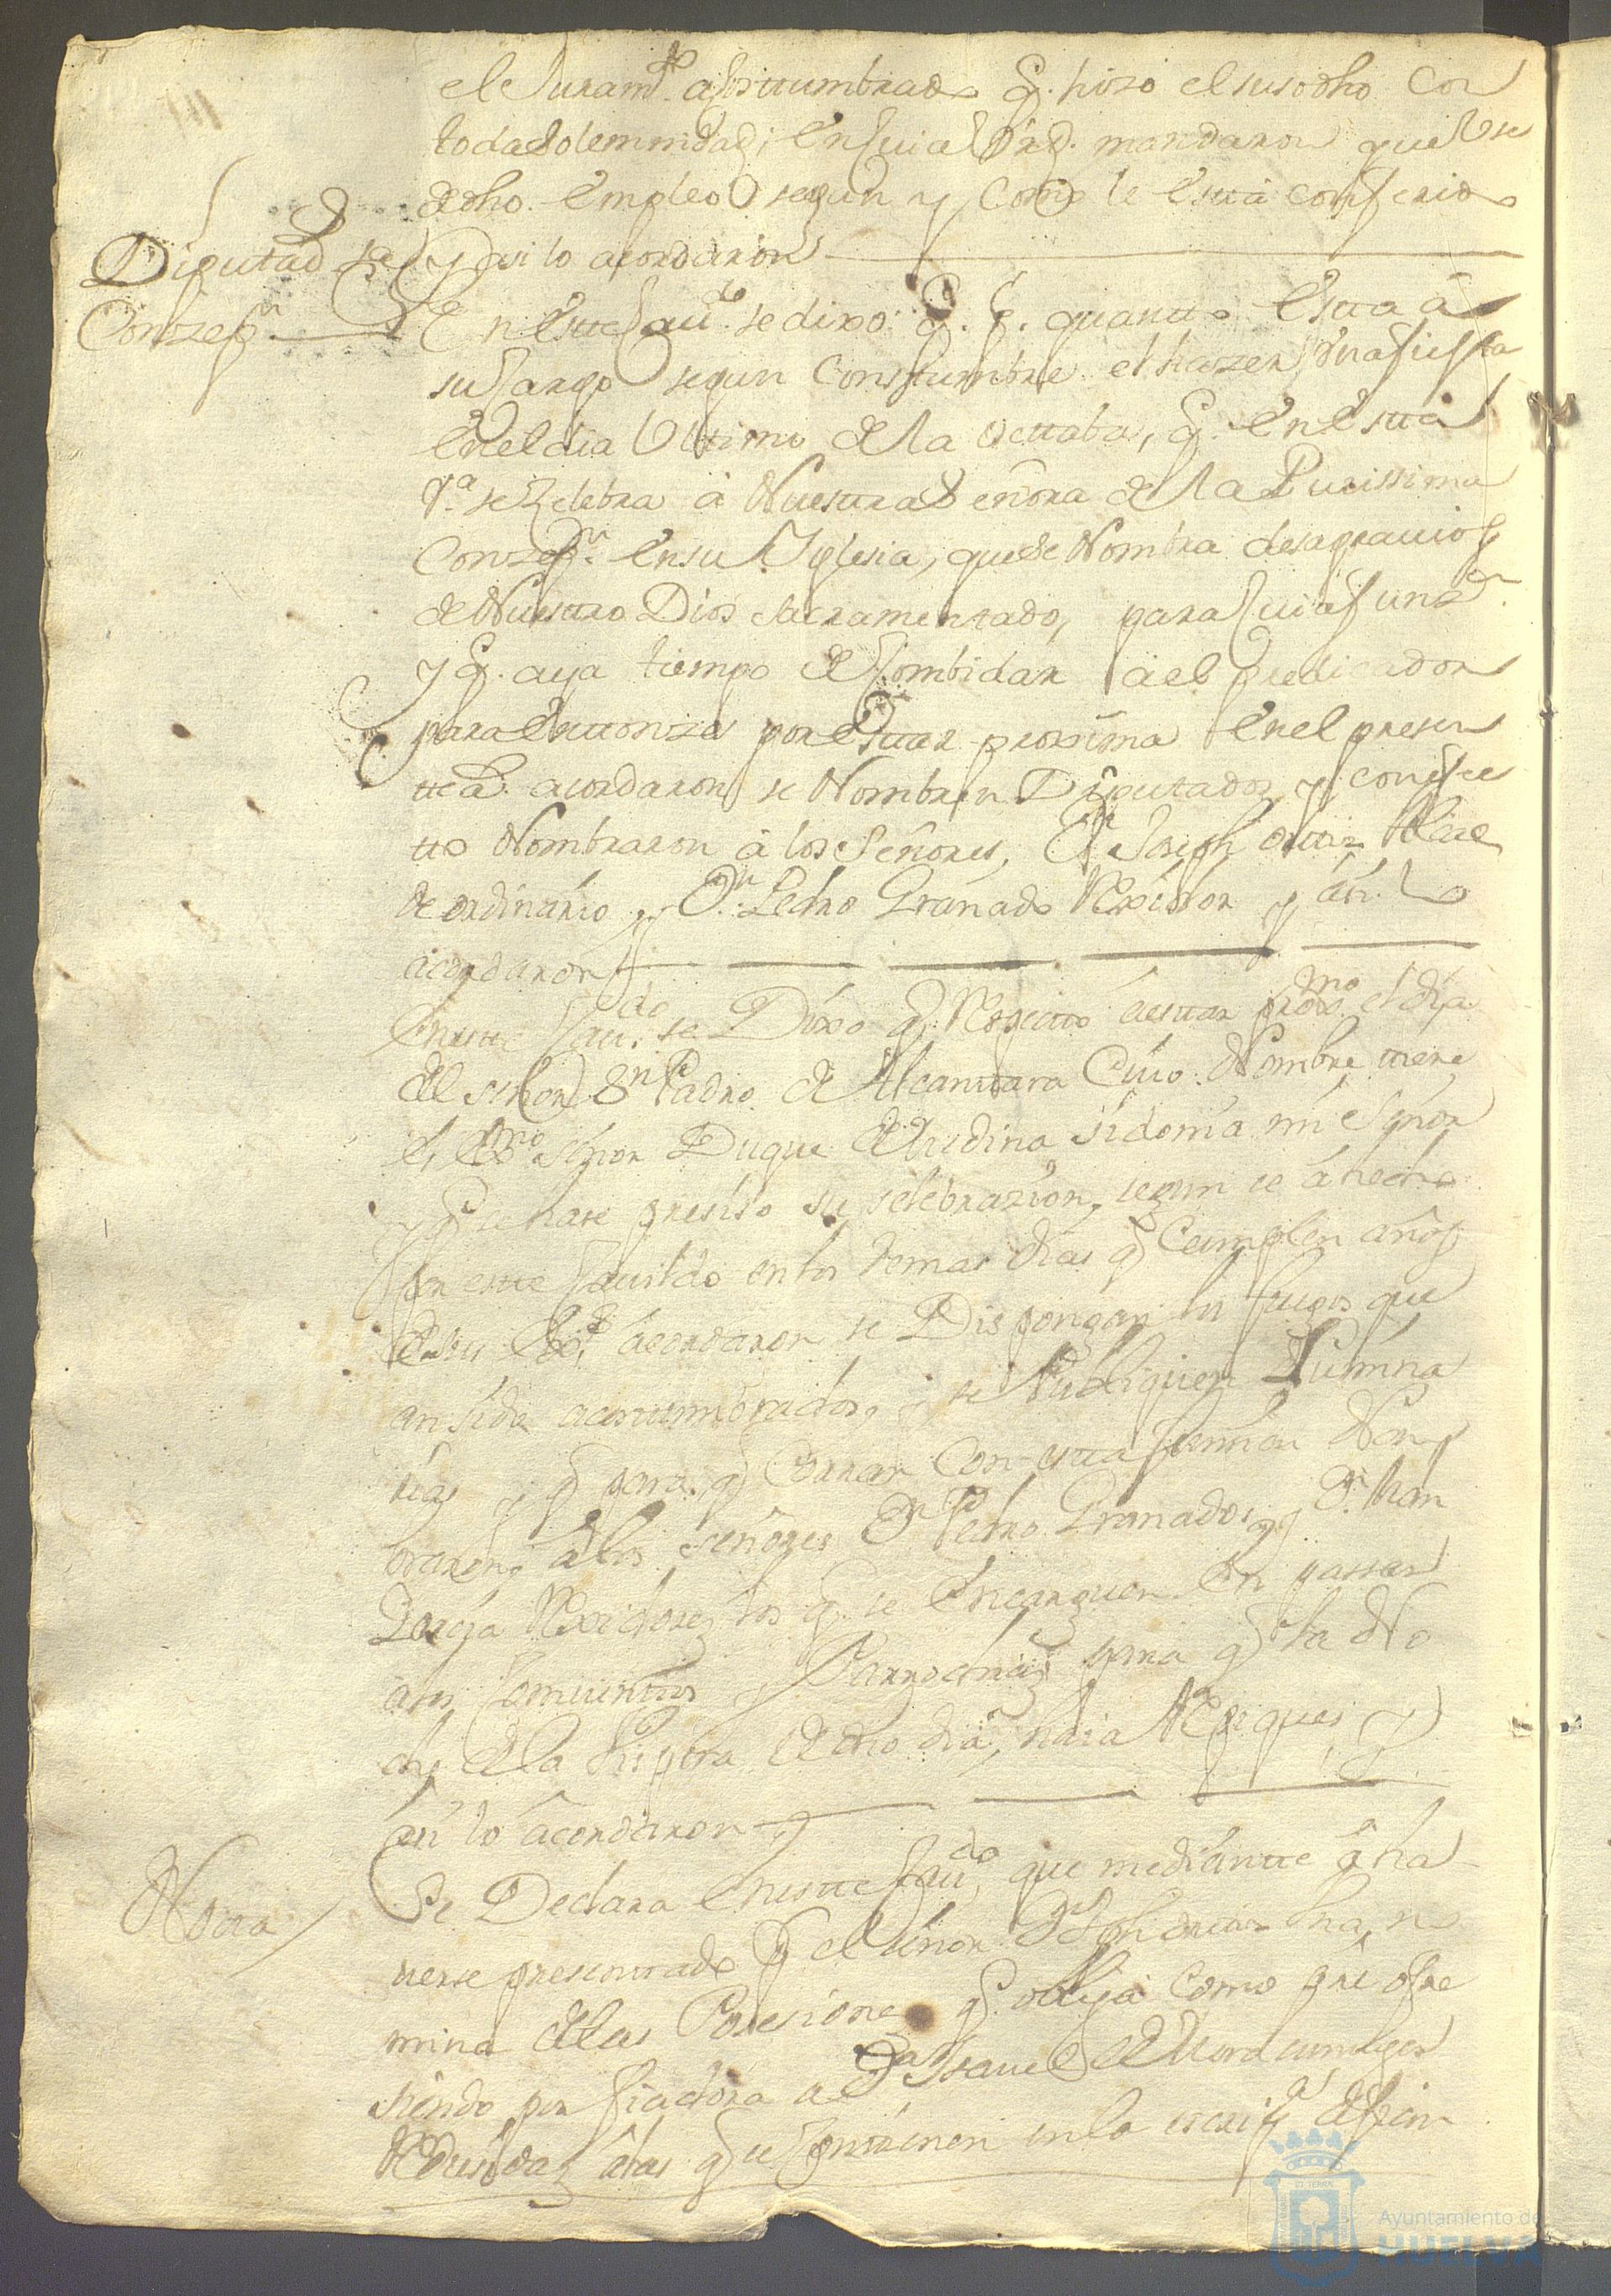 el Juramto. acostumbrado q. hizo el susodho con
toda Solemnidad; en Cuia Vrd. mandaron que Use
de dho. Empleo segun y Como le está conferido
Diputads. de y asi lo acordaron
Conzepn.
En Este Cavdo. se dixo: q. p. quanto Esta â
su Cargo segun Constumbre el hazer Una fiesta
En el dia Ultimo de la Octtaba, q. En Esta
Va. se Zelebra â Nuestra Señora de la Purissima
Conzepn. En su Yglesia, que se Nombra desagrauios
de Nuestro Dios Sacramentado, para Cuia funzn.
y q. aya tiempo de Combidar a el predicador
para Enttonzes por Estar proxima En el presen
te a. acordaron se Nombren Diputados, y con efec
to Nombraron â los Señores, Dn. Joseph ortiz Alcal
de ordinario, y Dn. Pedro Granado Rexidor y asi. lo
acordaron
En este Cavdo. se Dixo q. Respecto aestar proxmo. el dia
del señor Sn. Pedro de Alcantara Cuio Nombre tiene
el Exmo. señor Duque de Medina sidonia mi Señor
y q. se hase presiso su selebrazion, segun se â hecho
por este Cauildo en los demas dias q. Cumplen años
de su Exa. acordaron se Dispongan los fuegos que
an sido acostumbrados, y se Publiquen Lumina
rias y q. para q. Corran Con esta funcion Nom
braron, â los señores Dn. Pedro Granado, y Dn. Juan
Garcia Rexidores los q. se Encarguen En passar
a los Comuentos y Parrochias para q. la No
che de la bispera de dho dia, haia Repiques, y
asi lo âcordaron
Nota
Se Declara En este Cavdo. que mediante q. ha
uerse presentado p. el señor Dn. Joseph ortiz ha, no
mina de las Posesiones q. obliga Como que ofre
siendo por fiadora a Da. Isauel de
Redusidas â las q. se Contienen en la escripa. de fian
Ayuntamiento de
HUELVA